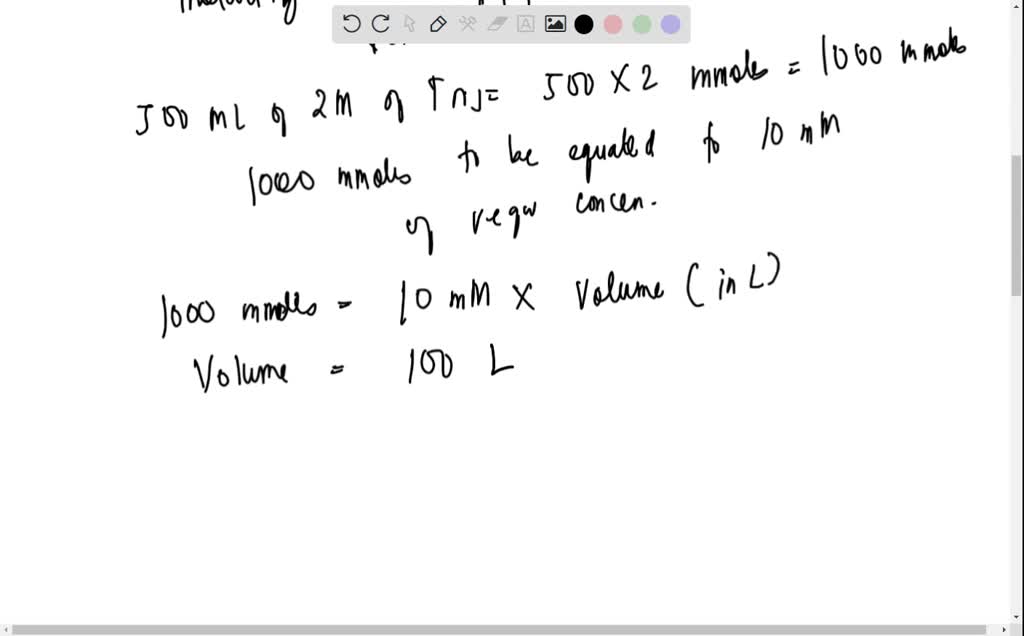 500 ml of 2M of Tris = 500 X 2 mmoles = 1000 mmoles
1000 mmoles to be equated to 10 mM
of concen.
1000 mmoles = 10 mM X Volume (in L)
Volume = 100 L